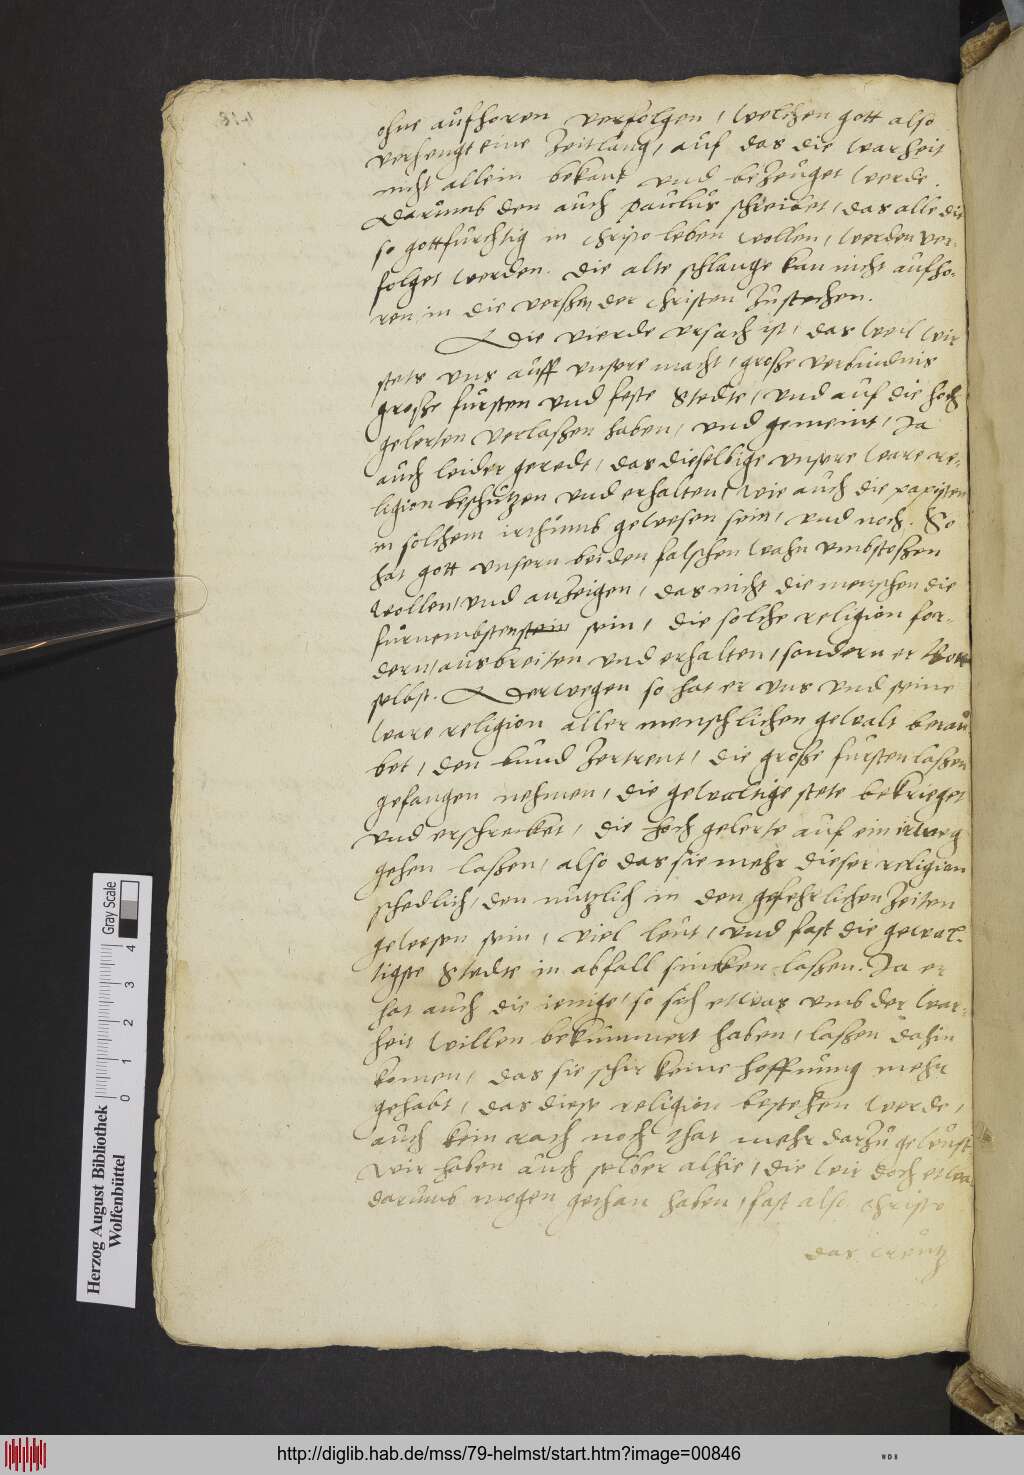 ohne aufhoren verfolgen, welchen gott also
verhengt eine Zeitlang, auf das die warheit
nicht allein bekant und bezeuget werde.
Darumb den auch Paulus schreibet, das alle die
so gottfurchtig in christo leben wollen, werden ver-
folget werden. Die alte schlange kan nicht aufho-
ren in die verßen der christen zustechen.
Die vierde ursach ist, das weil wir
stets uns auff unsere macht, große verbindnis
große fursten und feste Stedte, und auf die hoch
gelerten verlaßen haben, und gemeint, Ja
auch leider geredt, das dieselbige unsere ware re-
ligion beschutzen und erhalten, wie auch die papisten
in solchem irthumb gewesen sein, und noch. So
hat gott unsern beiden falschen wahn umbstoßen
wollen, und anzeigen, das nicht die menschen die
furnembsten sein, die solche religion for-
dern, ausbreiten und erhalten, sondern er Gott
selbst. Derwegen so hat er uns und seine
ware religion aller menschlichen gewalt berau-
bet, den bund zertrent, die große fursten laßen
gefangen nehmen, die gewaltige stete bekrieget
und erschrecket, die hoch gelerte auf ein irweg
gehen laßen, also das sie mehr dieser religion
schedlich, den nutzlich in den gefehrlichen Zeiten
gewesen sein, viel leut, und fast die gewal-
tigste Stedte in abfall sincken laßen. Ja er
hat auch die ienige, so sich etwas umb der war-
heit willen bekummert haben, laßen dahin
komen, das sie schir keine hoffnung mehr
gehabt, das diese religion bestehen werde,
auch kein rach noch that mehr darzu gewust
wir haben auch selber alhie, die wir doch etwa
darumb mogen gethan haben, fast also christo
das creutz
Herzog August Bibliothek
Wolfenbüttel
0 1 2 3 4
Gray Scale
http://diglib.hab.de/mss/79-helmst/start.htm?image=00846
WDB